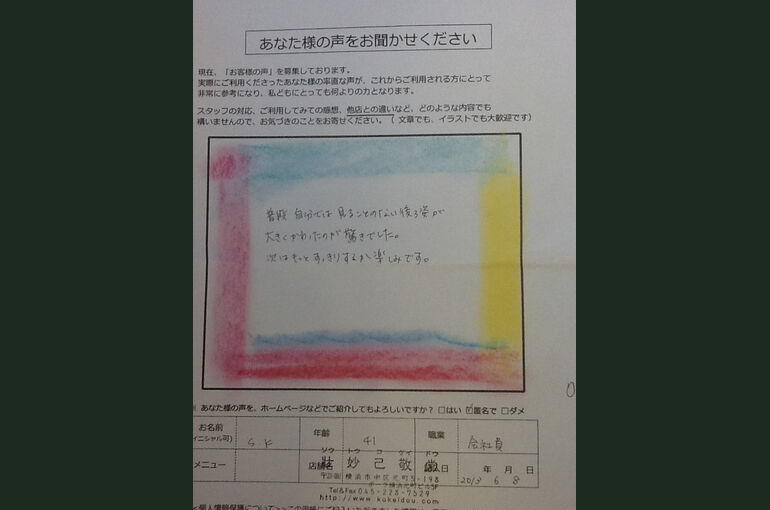 あなた様の声をお聞かせください
現在、「お客様の声」を募集しております。
実際にご利用くださったあなた様の率直な声が、これからご利用される方にとって
非常に参考になり、私どもにとっても何よりの力となります。
スタッフの対応、ご利用してみての感想、他店との違いなど、どのような内容でも
構いませんので、お気づきのことをお寄せください。（ 文章でも、イラストでも大歓迎です）
普段 自分では 見ることのない後ろ姿が
大きくかわったのが 驚きでした。
次はもっとすっきりするか 楽しみです。
あなた様の声を、ホームページなどでご紹介してもよろしいですか？ □はい ☑匿名で □ダメ
お名前 年齢 職業
イニシャル可) S K 41 会社員
メニュー 店舗名 記入日 年 月 日
2013 6 8
ソウ トウ コ ケイ ドウ
妙己敬堂
横浜市中区元町5-198
Tel&Fax045-228-7529
http://www.kokeidou.com